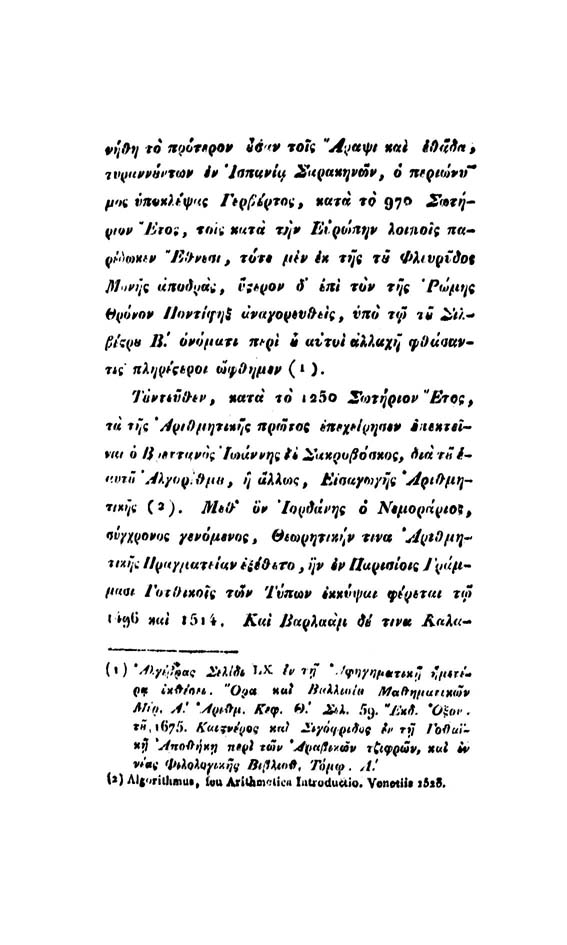 νήθη τὸ πρότερον ὖσαν τοῖς Ἄραψι καὶ
τυραννούντων ἐν Ἱσπανίᾳ Σαρακηνῶν, ὁ περιώνυ-
μος ὑποκλέψας Γερβέρτος, κατὰ τὸ 970 Σωτή-
ριον Ἔτος, τοῖς κατὰ τὴν Εὐρώπην λοιποῖς πα-
ρέδωκεν Ἔθνεσι, τότε μὲν ἐκ τῆς τοῦ Φλωρῦδος
Μονῆς ἀποδρὰς, ὕστερον δ' ἐπὶ τὸν τῆς Ῥώμης
Θρόνον Ποντίφηξ ἀναγορευθεὶς, ὑπὸ τῷ τοῦ Σιλ-
βέςρου Β.' ὀνόματι περὶ οὗ αὐτοὶ ἀλλαχῆ φθάσαν-
τες πληρέςεροι ὤφθημεν (1).
Τἀντεῦθεν, κατὰ τὸ 1250 Σωτήριον Ἔτος,
τὰ τῆς Ἀριθμητικῆς πρῶτος ἐπεχείρησεν ἐπεκτεῖ-
ναι ὁ Βρεττανὸς Ἰωάννης δὲ Σακροβόσκος, διὰ τοῦ ἑ-
αυτοῦ Ἀλγορίθμου, ἢ ἄλλως, Εἰσαγωγῆς Ἀριθμη-
τικῆς (2). Μεθ' ὃν Ἰορδάνης ὁ Νεμοράριος,
σύγχρονος γενόμενος, Θεωρητικήν τινα Ἀριθμη-
τικῆς Πραγματείαν ἐξέθετο, ἣν ἐν Παρισίοις Γράμ-
μασι Γοτθικοῖς τῶν Τύπων ἐκκύψαι φέρεται τῷ
1496 καὶ 1514. Καὶ Βαρλαὰμ δέ τινα Καλα-
(1) Ἀλγέβρας Σελίδι LX. ἐν τῇ Ἀφηγηματικῇ ἡμετέ-
ρᾳ ἐκθέσει. Ὅρα καὶ Βαλλισίου Μαθηματικῶν
Μέρ. Α.' Ἀριθμ. Κεφ. Θ.' Σελ. 59. Ἔκδ. Ὀξον.
τῦ, 1675. Καιςνέρος καὶ Σιγόφριδος ἐν τῇ Γοθαϊ-
κῇ Ἀποθήκῃ περὶ τῶν Ἀραβικῶν τζιφρῶν, καὶ ἐν
νέας Φιλολογικῆς Βιβλιοθ. Τόμῳ. Α.'
(2) Algorithmus, ſeu Arithmetica Introductio. Venetiis 1523.